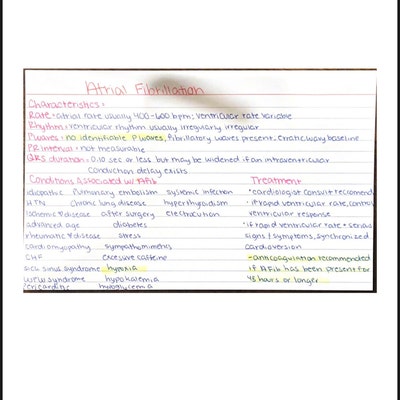 Atrial Fibrillation
Characteristics:
Rate: atrial rate usually 400-600 bpm; ventricular rate variable
Rhythm: ventricular rhythm usually irregularly irregular
P waves: no identifiable P waves, fibrillatory waves present. Erratic wavy baseline
PR interval: not measurable
QRS duration: 0.10 sec or less but may be widened if an intraventricular
conduction delay exists
Conditions Associated w/ AFib Treatment
idiopathic pulmonary embolism systemic infection *cardiologist consult recomend
HTN chronic lung disease hyperthyroidism *if rapid ventricular rate, control
ischemic disease after surgery electrocution ventricular response
advanced age diabetes *if rapid ventricular rate + serious
rheumatic disease stress signs + symptoms, synchronized
cardiomyopathy sympathomimetics cardioversion
CHF excesive caffeine -anticoagulation recommended
sick sinus syndrome hypoxia if AFib has been present for
WPW syndrome hypokalemia 48 hours or longer
pericarditis